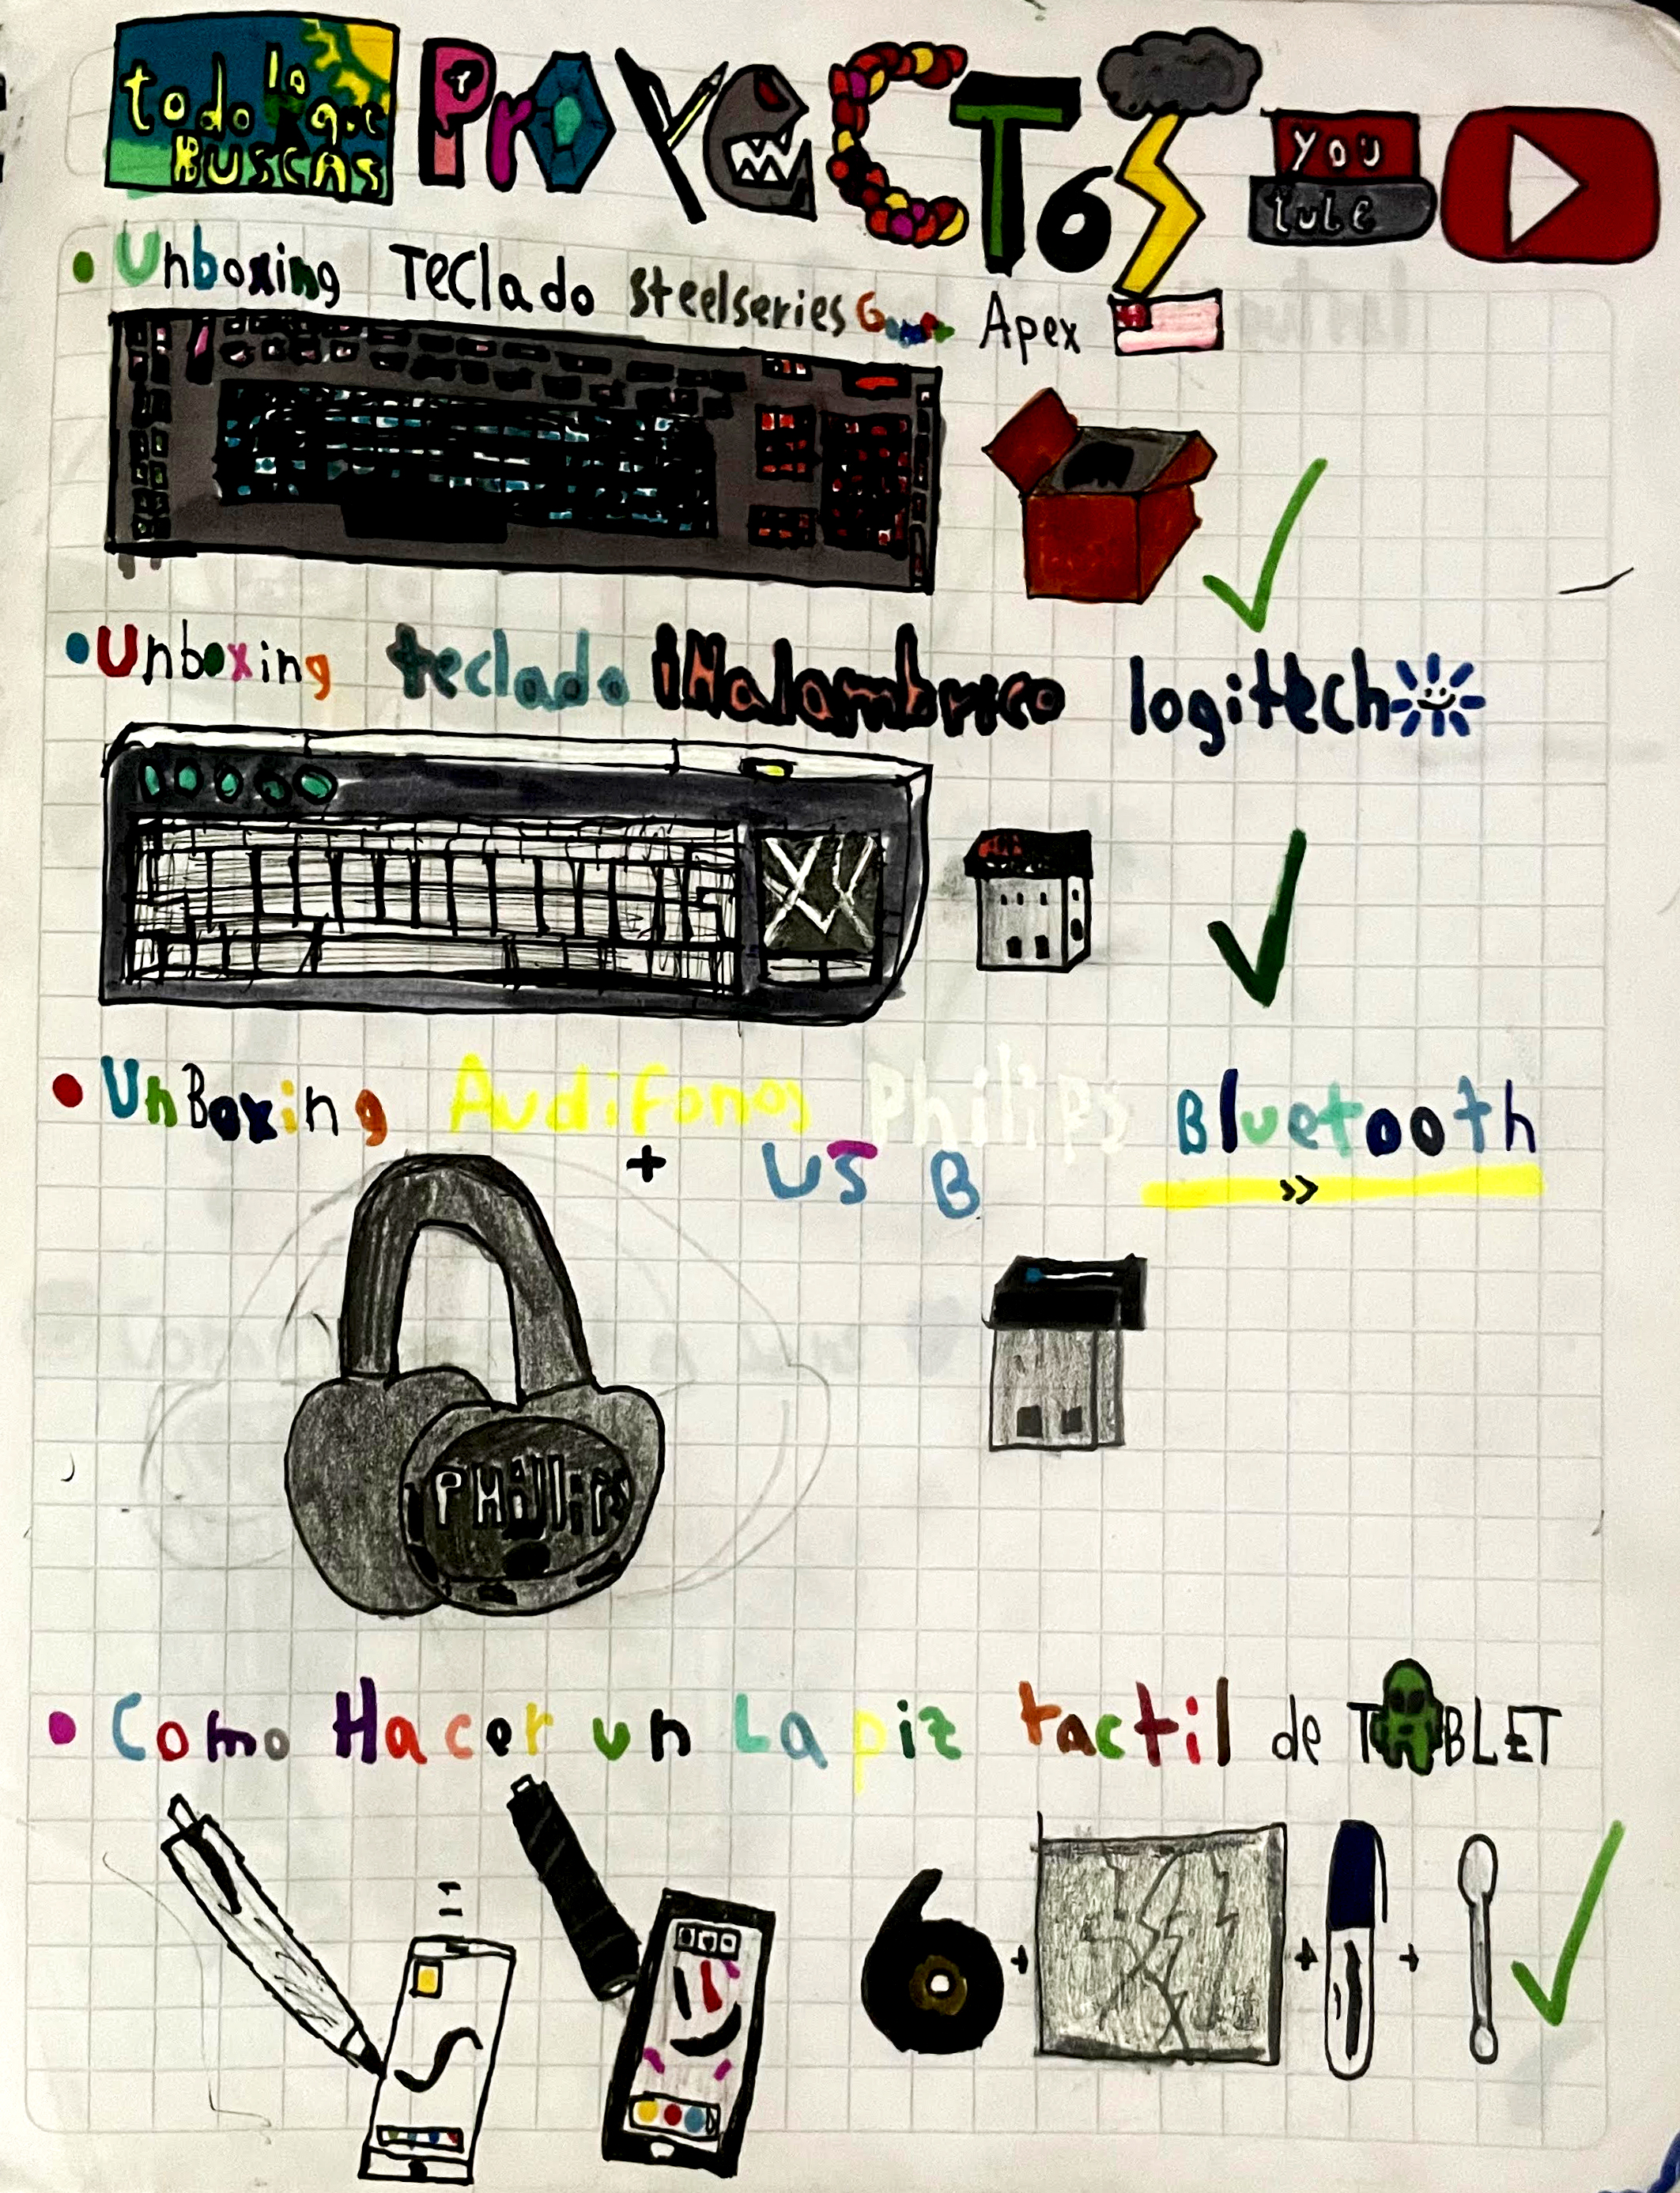 todo lo que BUSCAS
PrOYeCTOS
YOU tube
Unboxing Teclado steelseries Games Apex
Unboxing teclado iNalambrico logitech
UnBoxing Audifonos Philips Bluetooth
+ USB
>>
PHilips
Como Hacer un Lapiz tactil de TABLET
=
+ + +